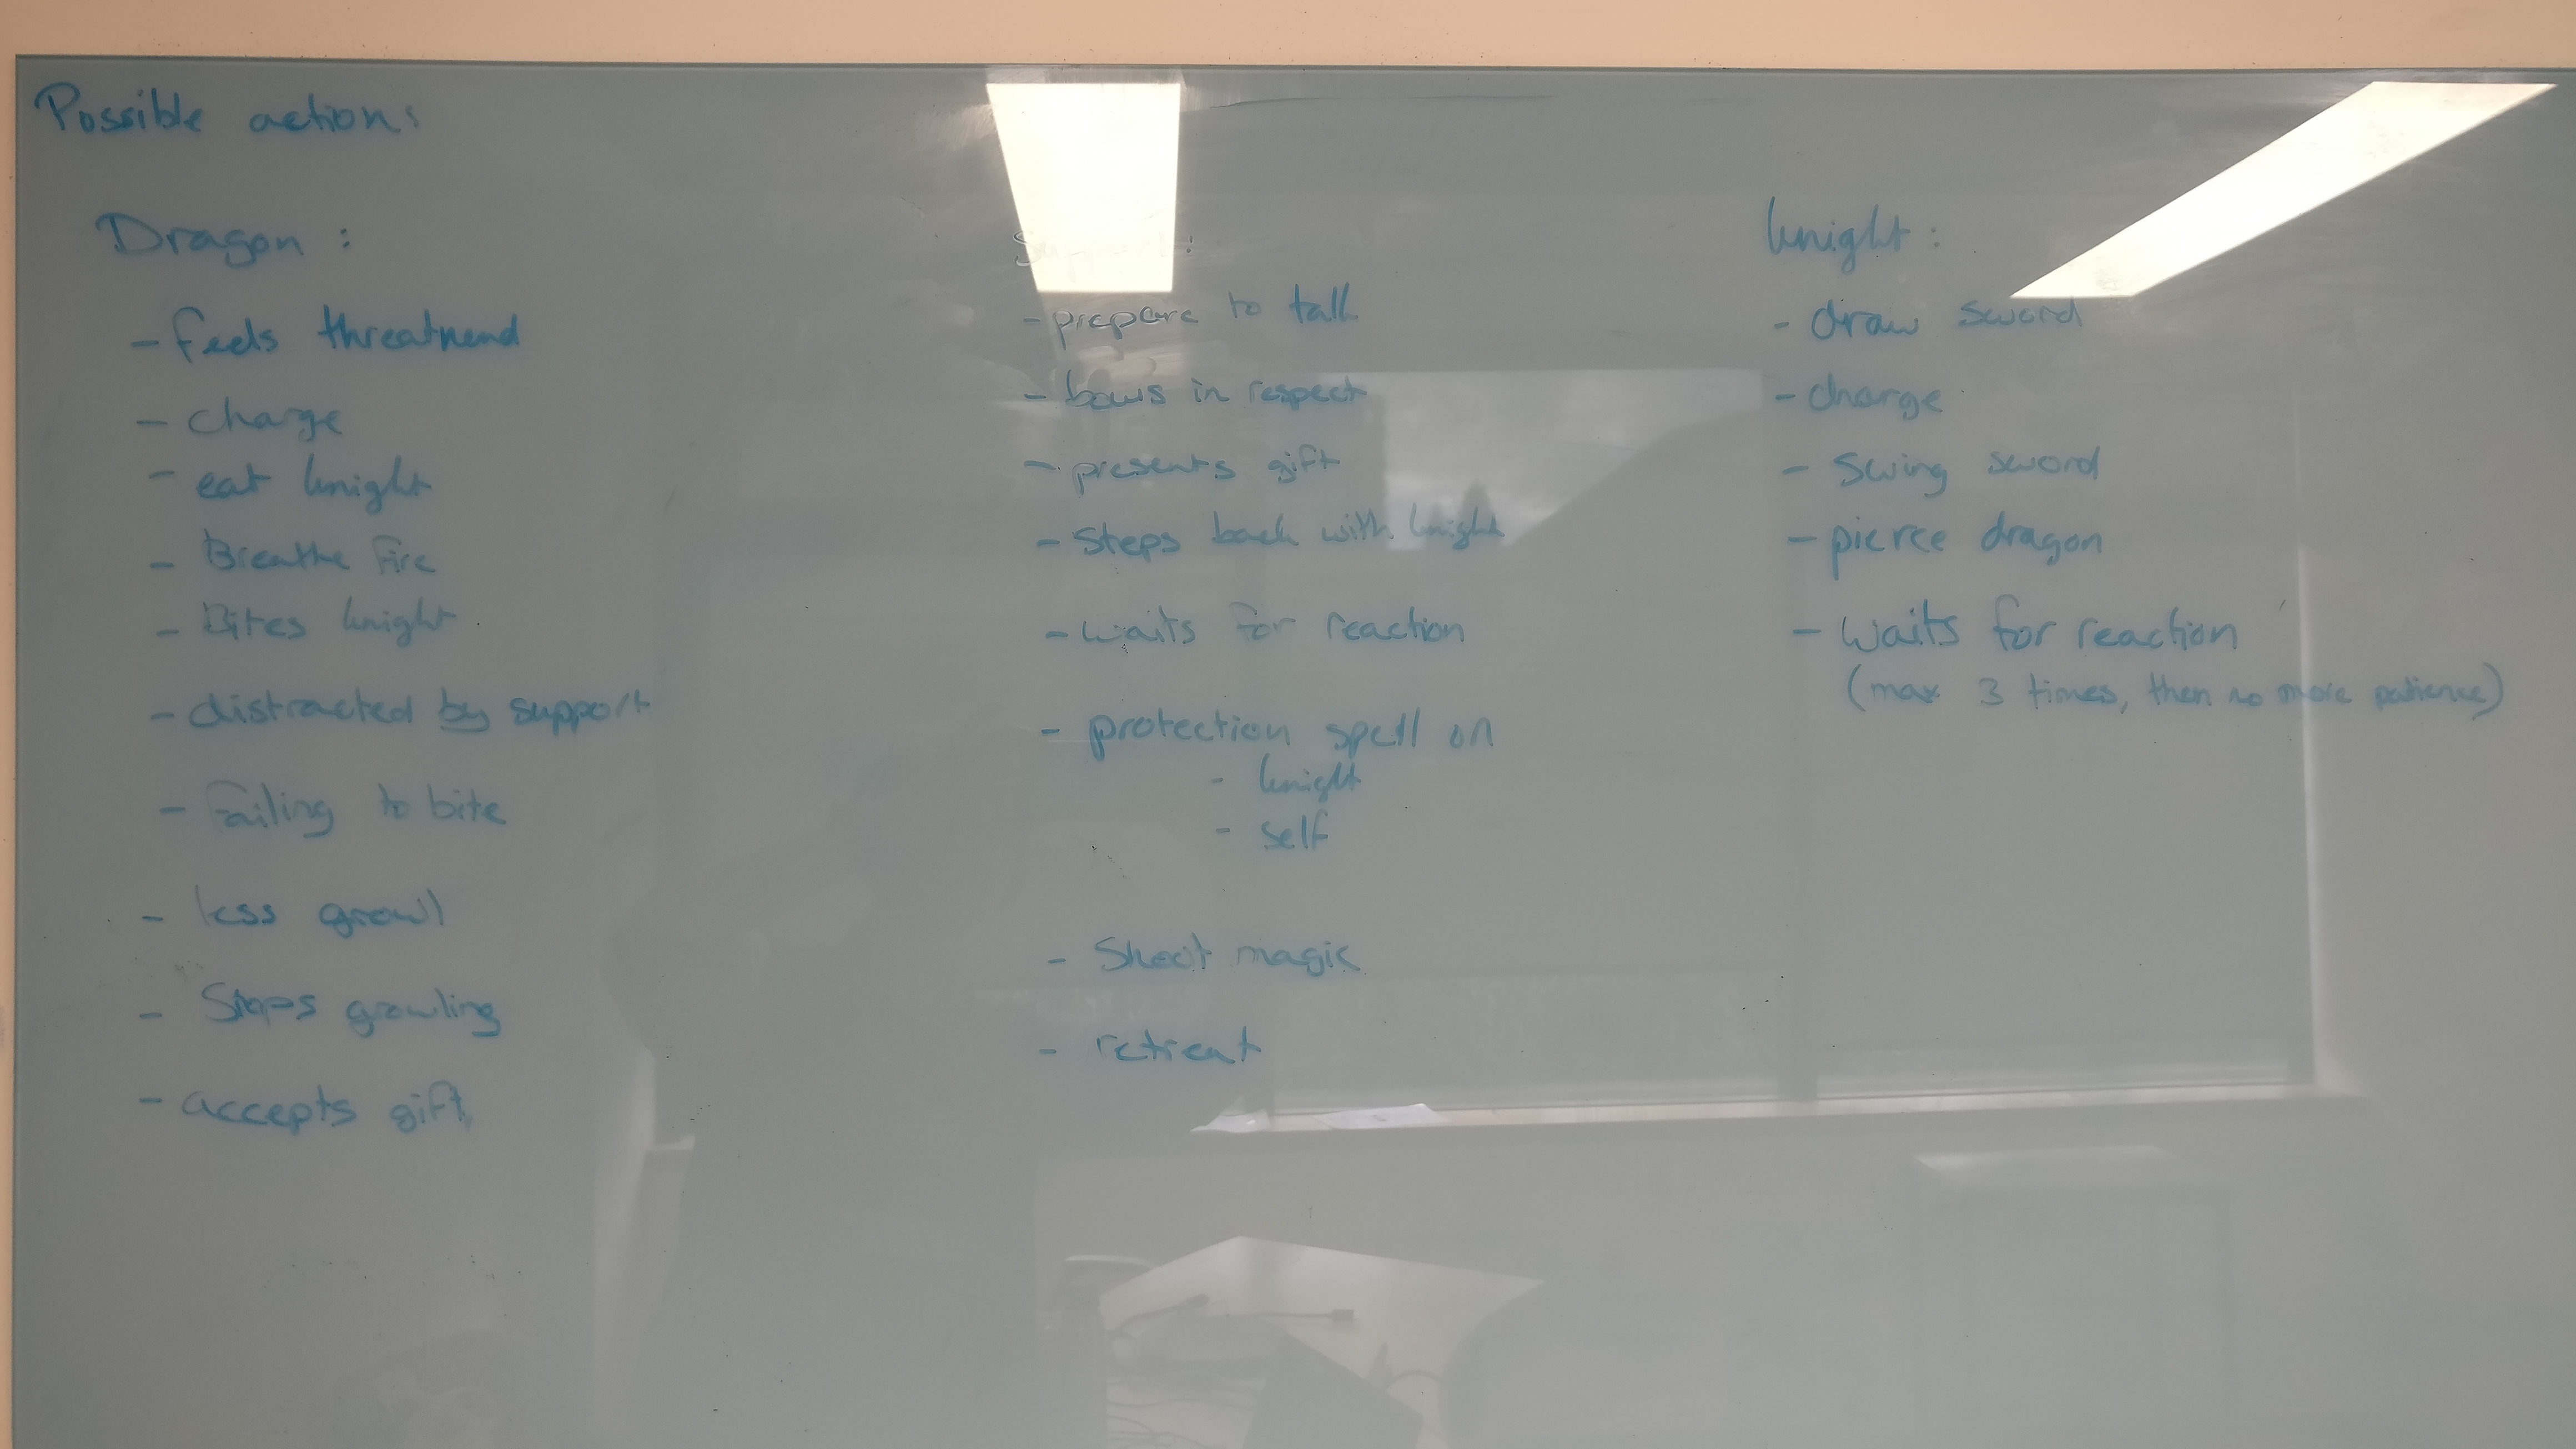 Possible action:
Dragon :
- feels threatnend
- charge
- eat knight
- Breathe fire
- Bites knight
- distracted by support
- Failing to bite
- less growl
- Stops growling
- accepts gift
Support:
- prepare to talk
- bows in respect
- presents gift
- steps back with knight
- waits for reaction
- protection spell on
- knight
- self
- Shoot magic
- retreat
knight :
- draw sword
- charge
- swing sword
- pierce dragon
- waits for reaction
(max 3 times, then no more patience)